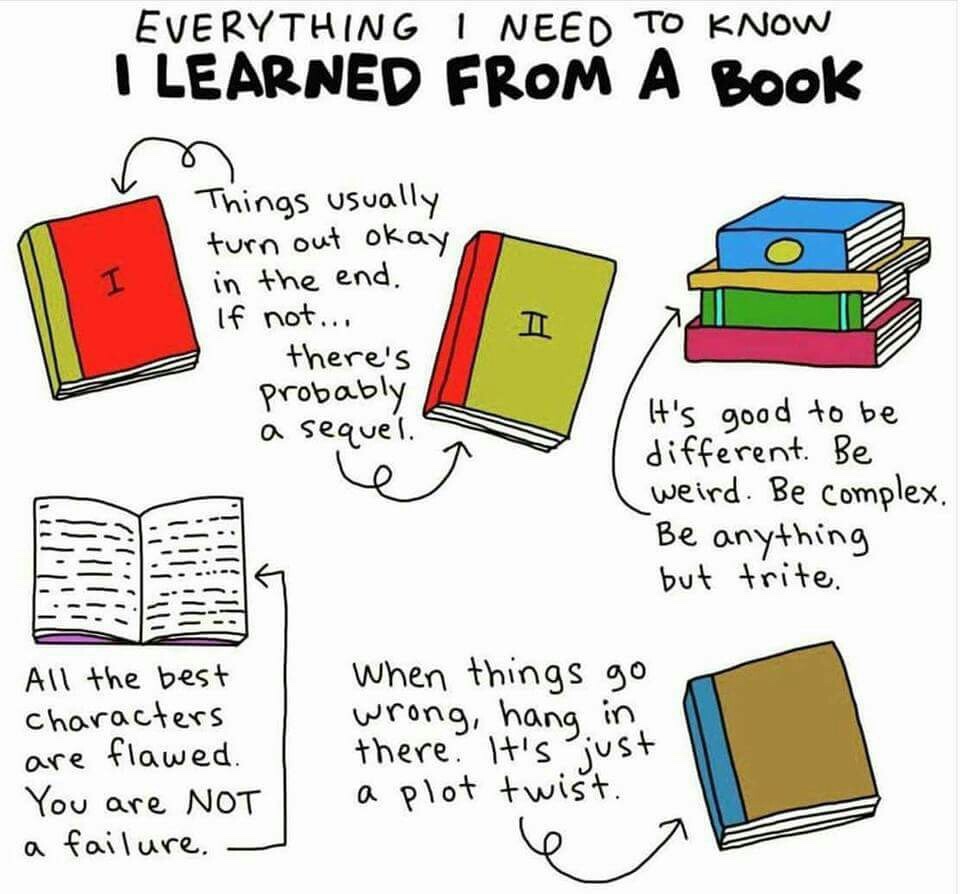 EVERYTHING I NEED TO KNOW
I LEARNED FROM A BOOK
Things usually
turn out okay
in the end.
If not...
there's
probably
a sequel.
I
II
It's good to be
different. Be
weird. Be complex.
Be anything
but trite.
All the best
characters
are flawed.
You are NOT
a failure.
When things go
wrong, hang in
there. It's just
a plot twist.